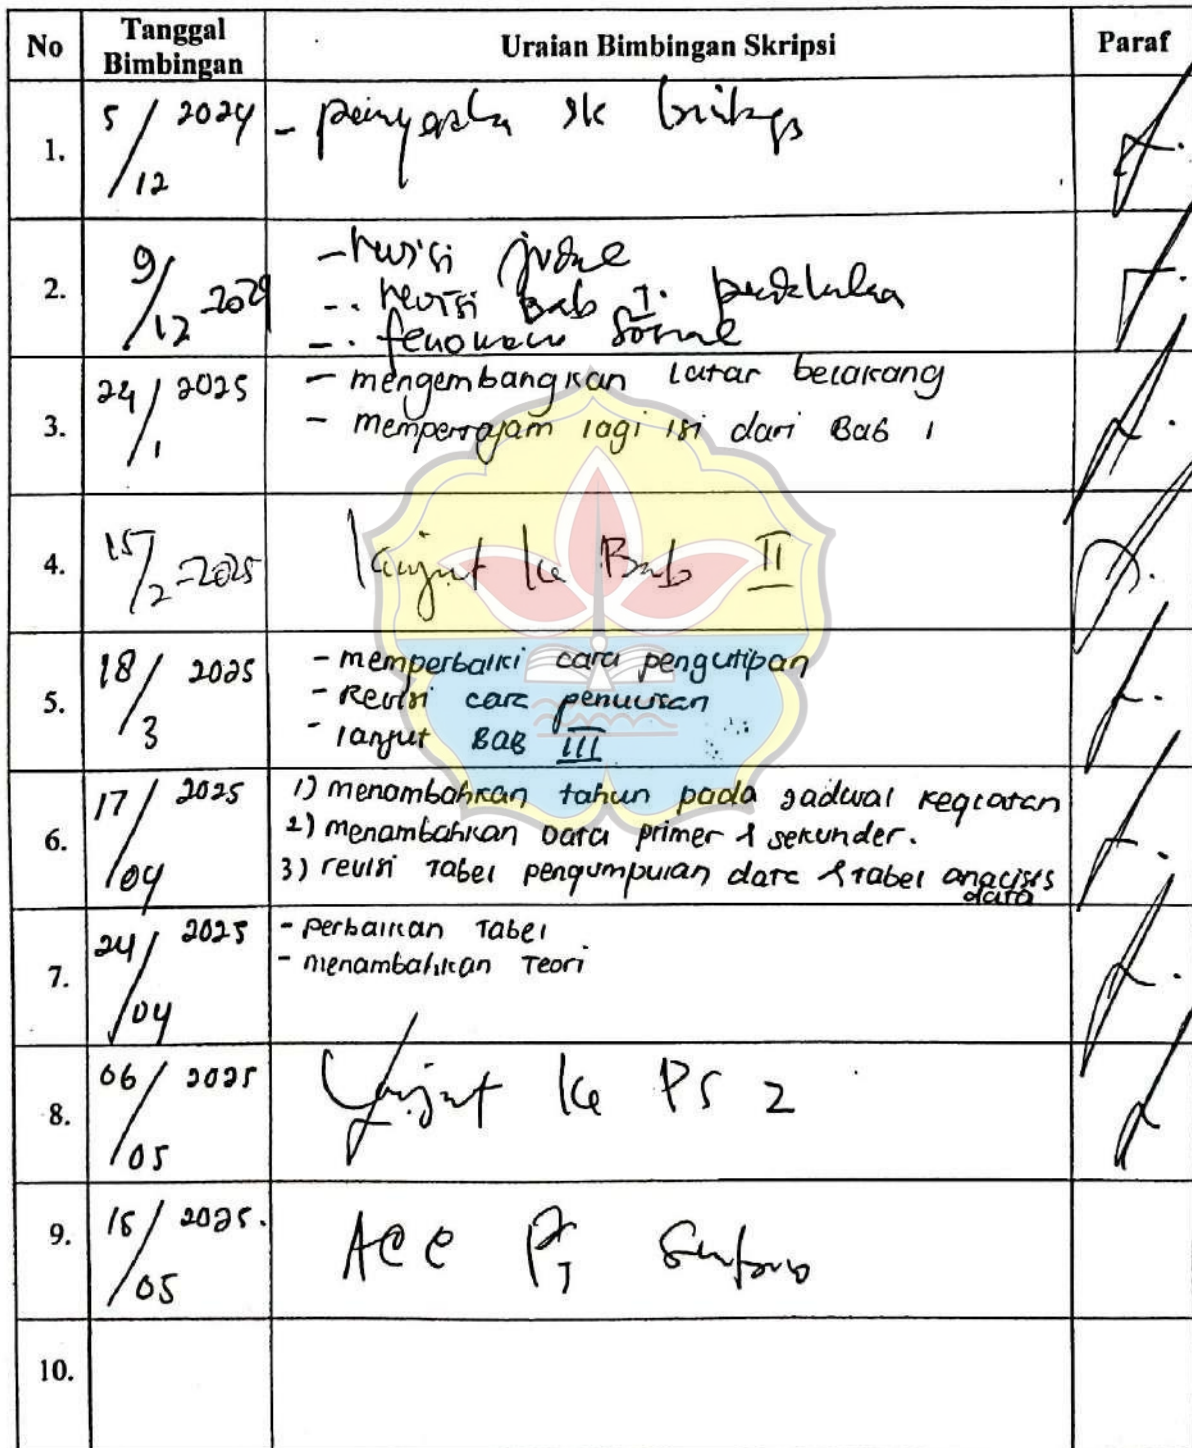 No Tanggal Bimbingan Uraian Bimbingan Skripsi Paraf
1. 5/12 2024 - sk
2. 9/12-2024 - revisi judul
- revisi Bab I.
- fenomena sosial
3. 24/1 2025 - mengembangkan Latar belakang
- mempertajam lagi isi dari Bab 1
4. 15/2-2025 lanjut ke Bab II
5. 18/3 2025 - memperbaiki cara pengutipan
- Revisi cara penulisan
- lanjut BAB III
6. 17/04 2025 1) menambahkan tahun pada jadwal kegiatan
2) menambahkan Data primer & sekunder.
3) revisi Tabel pengumpulan data & Tabel analisis
data
7. 24/04 2025 - perbaikan Tabel
- menambahkan Teori
8. 06/05 2025 Lanjut ke PS 2
9. 15/05 2025. ACC
10.